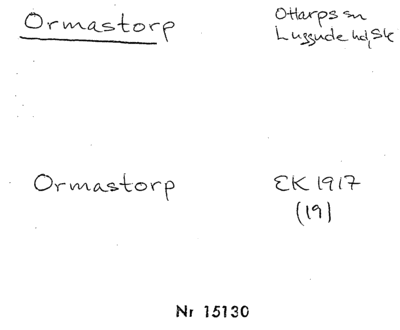 Ormastorp
Ottarps sn
Luggude hd, Sk
Ormastorp
EK 1917
(19)
Nr 15130